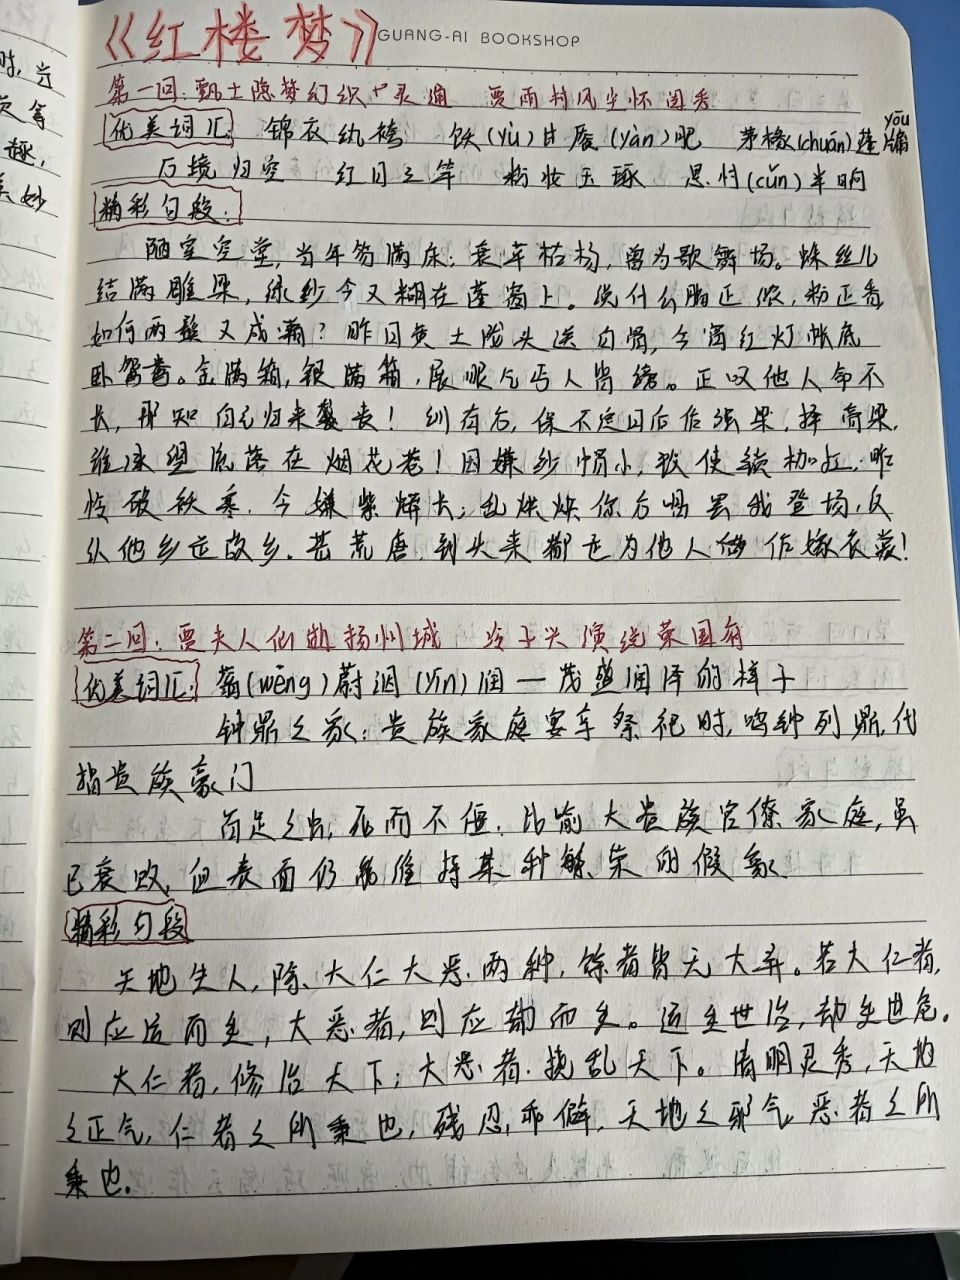 《红楼梦》GUANG-AI BOOKSHOP
第一回:甄士隐梦幻识通灵 贾雨村风尘怀闺秀
优美词汇: 锦衣纨绔 饫(yù)甘餍(yàn)肥 茅椽(chuán)蓬牖 yǒu
万境归空 红日三竿 粉妆玉琢 思忖(cǔn)半晌
精彩句段:
陋室空堂,当年笏满床;衰草枯杨,曾为歌舞场。蛛丝儿
结满雕梁,绿纱今又糊在蓬窗上。说什么脂正浓,粉正香
如何两鬓又成霜?昨日黄土陇头送白骨,今宵红灯帐底
卧鸳鸯。金满箱,银满箱,展眼乞丐人皆谤。正叹他人命不
长,那知自己归来丧!训有方,保不定日后作强梁,择膏粱,
谁承望流落在烟花巷!因嫌纱帽小,致使锁枷扛,昨
怜破袄寒,今嫌紫蟒长;乱烘烘你方唱罢我登场,反
认他乡是故乡。甚荒唐,到头来都是为他人作嫁衣裳!
第二回:贾夫人仙逝扬州城 冷子兴演说荣国府
优美词汇: 蓊(wěng)蔚洇(yīn)润—茂盛润泽的样子
钟鼎之家:贵族家庭宴享祭祀时,鸣钟列鼎,代
指贵族豪门
百足之虫,死而不僵,比喻大贵族官僚家庭,虽
已衰败,但表面仍能维持某种繁荣的假象
精彩句段
天地生人,除大仁大恶两种,馀者皆无大异。若大仁者,
则应运而生,大恶者,则应劫而生。运生世治,劫生世危。
大仁者,修治天下;大恶者,挠乱天下。清明灵秀,天地
之正气,仁者之所秉也,残忍乖僻,天地之邪气,恶者之所
秉也。